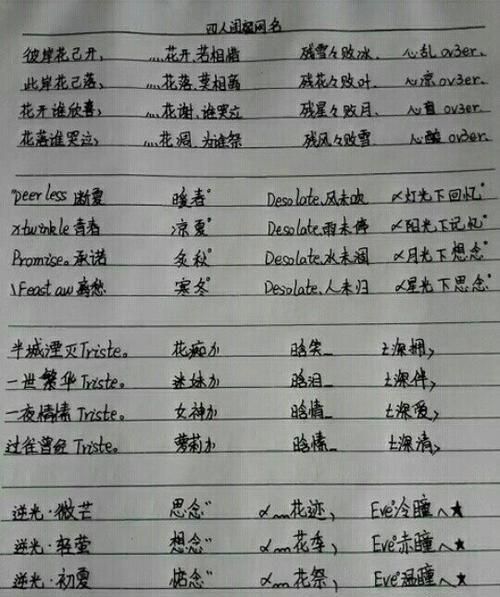 四人闺蜜网名
彼岸花已开, ﹏花开、若相惜 残雪々败冰、 心乱 ov3er.
此岸花已落, ﹏花落、莫相离 残花々败叶、 心凉 ov3er.
花开谁欣喜, ﹏花谢、谁哭泣 残星々败月、 心 ov3er.
花落谁哭泣, ﹏花凋、为谁祭 残风々败雪 心酸 ov3er.
"peerless 断夏 暖春° Desolate、风未吹 ∝灯光下回忆"
xtwinkle 青春 凉夏° Desolate、雨未停 ∝阳光下记忆"
Promise。承诺 冬秋° Desolate、水未涸 ∝月光下想念"
\Feast aw 离愁 寒冬° Desolate、人未归 ∝星光下思念"
半城湮灭Triste。 花痴か 晗笑_ ±深拥,
一世繁华Triste。 迷妹か 晗泪_ ±深伴,
一夜情愫Triste。 女神か 晗情_ ±深爱,
过往曾经 Triste。 萝莉か 晗愫_ ±深情,
逆光·微芒 思念" ∝﹏花迹, Eve°冷瞳へ★
逆光·轻萤 想念" ∝﹏花季, Eve°赤瞳へ★
逆光·初夏 惦念" ∝﹏花祭, Eve°温瞳へ★